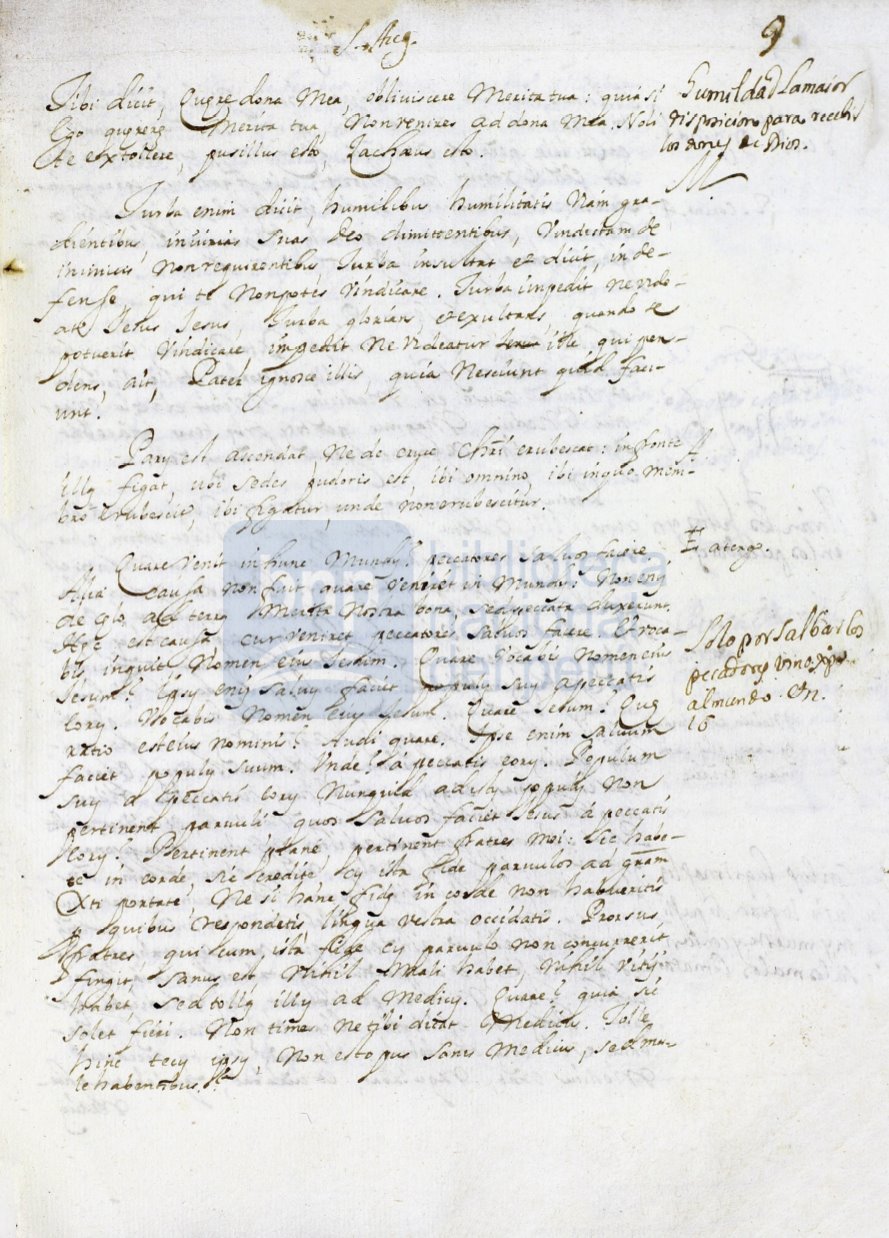 S. Aug.
9
Tibi dicit, Quęre dona Mea, obliviscere Merita tua: quia si
Ego quęrerē Merita tua, Non venires ad dona Mea. Noli
te extollere, pusillus esto, Zachæus esto.
Humildad la maior
disposicion para recebir
los dones de Dios.
Turba enim dicit, humilibus humilitatis Viam gra-
dientibus, iniurias suas Deo dimittentibus, Vindictam de
inimicis Non requirentibus, Turba insultat et dicit, inde-
fense qui te Non potes Vindicare. Turba impedit ne vide-
atr Jesus, Turba glorians, et exultans, quando se
potuerit Vindicare impedit Ne Videatur ille, qui pen-
dens, ait, Pater ignosce illis, quia Nesciunt quid faci-
unt.
Parū est ascendat Ne de cruce Chri erubescat: in fronte
illā figat, ubi sedes pudoris est, ibi omnino, ibi in quo mem-
bro erubescit, ibi figatur, unde non erubescitur.
Quare Venit in hunc Mundū? peccatores Salvos facere.
Alia causa non fuit, quare Veniret in Mundū. Non enī
de cęlo, ad terrā Merita Nostra bona, sed peccata duxerunt.
Hęc est causa cur veniret peccatores Salvos facere. Et voca-
bis, inquit Nomen eius Iesum. Quare Vocabis Nomen eius
Iesum? Ipse enī salvū faciet populū suū a peccatis
eorū. Vocabis Nomen eius Iesum. Quare Iesum? Quę
ratio est eius Nominis? Audi quare. Ipse enim salvum
faciet populū suum. Inde? a peccatis eorū. Populum
suū a peccatis eorū. Nunquid ad istū populū Non
pertinent parvuli quos Salvos faciet Jesus á peccatis
eorū? Pertinent plane, pertinent fratres Mei: Sic habe-
te in corde, sic credite, cū ista fide parvulos ad gram
Xti portate, Ne si hanc fidē in corde non habueritis
quibus respondetis lingua vestra occidatis. Prorsus
fratres, qui cum ista fide cū parvulo non concurrerit
fingit, Sanus est, Nihil Mali habet, Nihil Vitij
habet, Sed tollo illū ad Medicū. Quare? quia sic
solet fieri. Non times ne tibi dicat Medicus. Tolle
hinc tecū ipsū, Non est opus Sanis Medicus, sed ma-
le habentibus.
E atergo.
Solo por Salbar los
pecadores vino Xpo
al mundo.